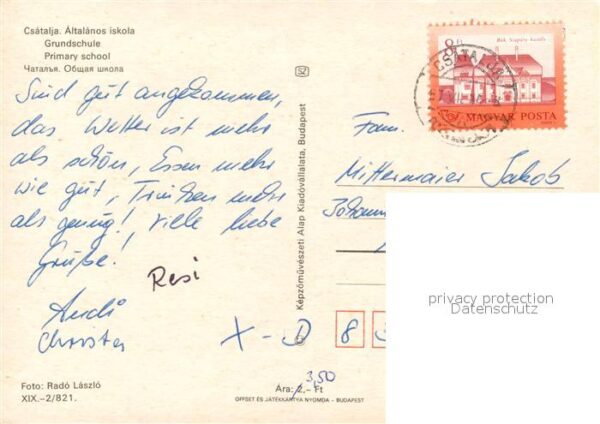 Csátalja. Általános iskola
Grundschule
Primary school
Чаталья. Общая школа
Sind gut angekommen,
das Wetter ist mehr
als schön, Essen mehr
wie gut, Trinken mehr
als genug! Viele liebe
Grüße!
Resi
Andi
Christa
Foto: Radó László
XIX.–2/821.
Képzőművészeti Alap Kiadóvállalata, Budapest
MAGYAR POSTA
CSÁTALJA
Fam.
Mittermaier Jakob
privacy protection
Datenschutz
X-D 8
3,50
Ára: 2,– Ft
OFFSET ÉS JÁTÉKKÁRTYA NYOMDA – BUDAPEST